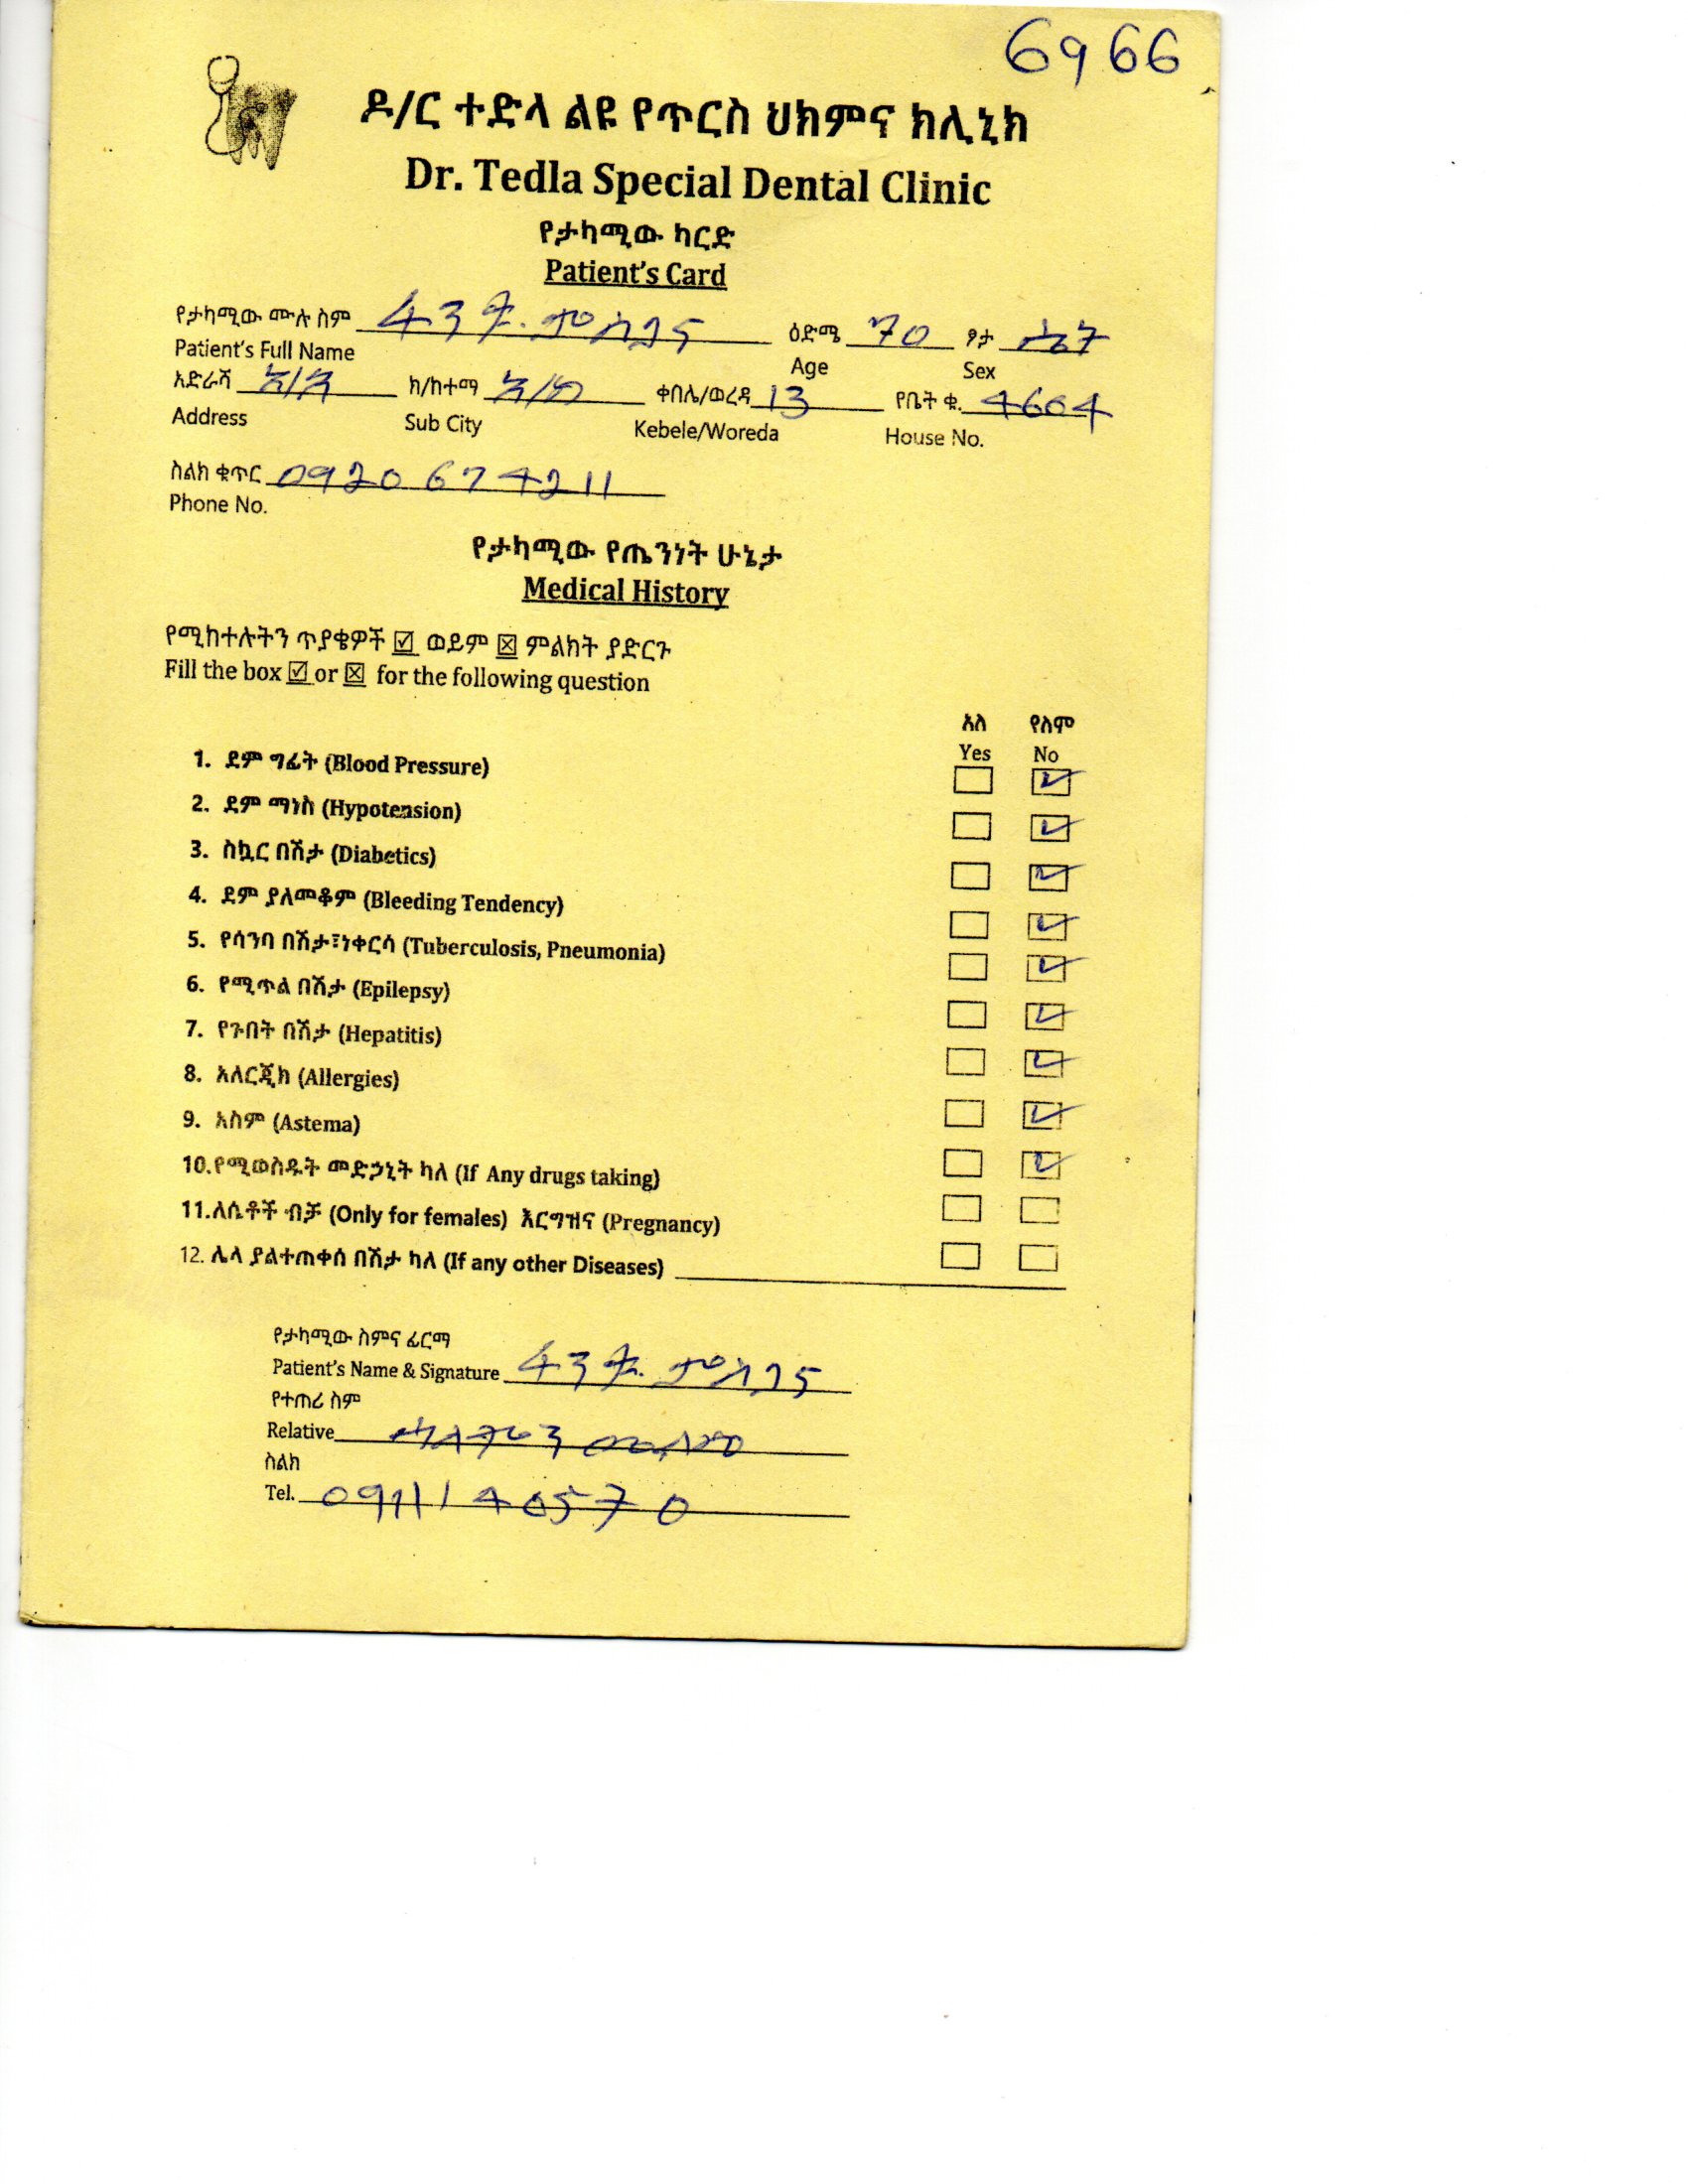 6966
ዶ/ር ተድላ ልዩ የጥርስ ህክምና ክሊኒክ
Dr. Tedla Special Dental Clinic
የታካሚው ካርድ
Patient's Card
የታካሚው ሙሉ ስም ፋንቱ ተመስገና ዕድሜ 70 ፆታ ሴት
Patient's Full Name Age Sex
አድራሻ አ/አ ክ/ከተማ ቀበሌ/ወረዳ 13 የቤት ቁ. 4604
Address Sub City Kebele/Woreda House No.
ስልክ ቁጥር 0920 674211
Phone No.
የታካሚው የጤንነት ሁኔታ
Medical History
የሚከተሉትን ጥያቄዎች ☑ ወይም ☒ ምልክት ያድርጉ
Fill the box ☑ or ☒ for the following question
አለ የለም
Yes No
1. ደም ግፊት (Blood Pressure)
2. ደም ማነስ (Hypotension)
3. ስኳር በሽታ (Diabetics)
4. ደም ያለመቆም (Bleeding Tendency)
5. የሳንባ በሽታ፣ነቀርሳ (Tuberculosis, Pneumonia)
6. የሚጥል በሽታ (Epilepsy)
7. የጉበት በሽታ (Hepatitis)
8. አለርጂክ (Allergies)
9. አስም (Astema)
10.የሚወስዱት መድኃኒት ካለ (If Any drugs taking)
11.ለሴቶች ብቻ (Only for females) እርግዝና (Pregnancy)
12. ሌላ ያልተጠቀሰ በሽታ ካለ (If any other Diseases)
የታካሚው ስምና ፊርማ
Patient's Name & Signature ፋንቱ ተመስገና
የተጠሪ ስም
Relative
ስልክ
Tel.